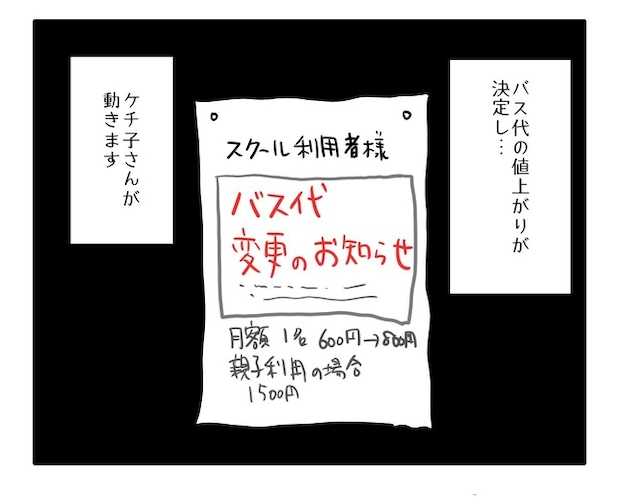 バス代の値上がりが
決定し…
スクール利用者様
バス代
変更のお知らせ
月額 1名 600円→800円
親子利用の場合
1500円
ケチ子さんが
動きます